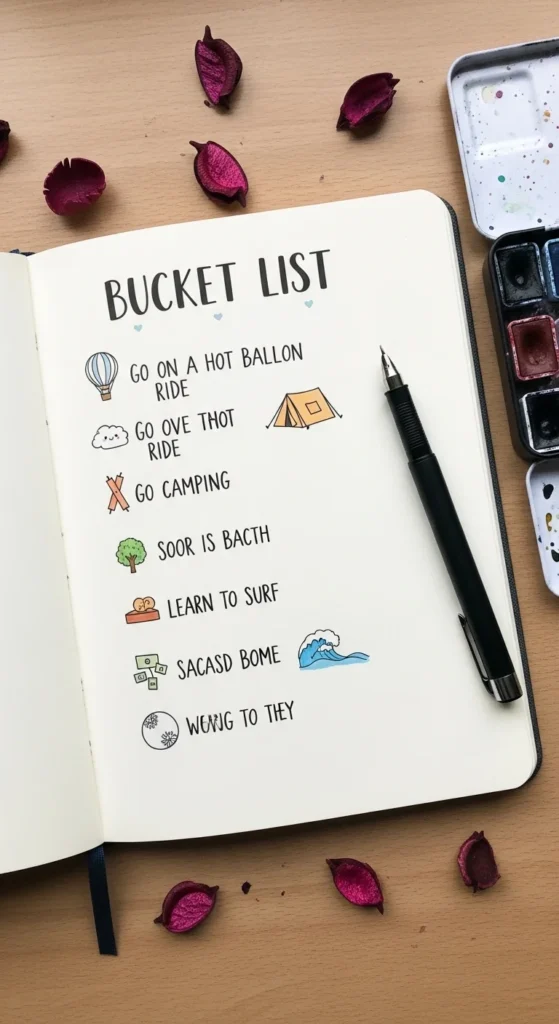 BUCKET LIST
GO ON A HOT BALLON
RIDE
GO OVE THOT
RIDE
GO CAMPING
SOOR IS BACTH
LEARN TO SURF
SACASD BOME
TO THEY